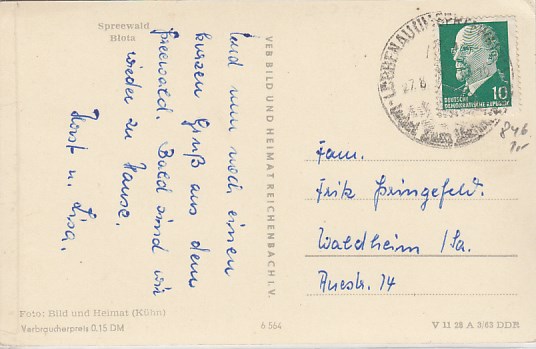 Spreewald
Błota
Und nun noch einen
kurzen Gruß aus dem
Spreewald. Bald sind wir
wieder zu Hause.
Horst u. Lisa.
VEB BILD UND HEIMAT REICHENBACH I. V.
10
DEUTSCHE
DEMOKRATISCHE REPUBLIK
846
1,-
Fam.
Fritz Springefeld.
Waldheim /Sa.
Auestr. 14
Foto: Bild und Heimat (Kühn)
Verbraucherpreis 0,15 DM
6 564
V 11 28 A 3/63 DDR